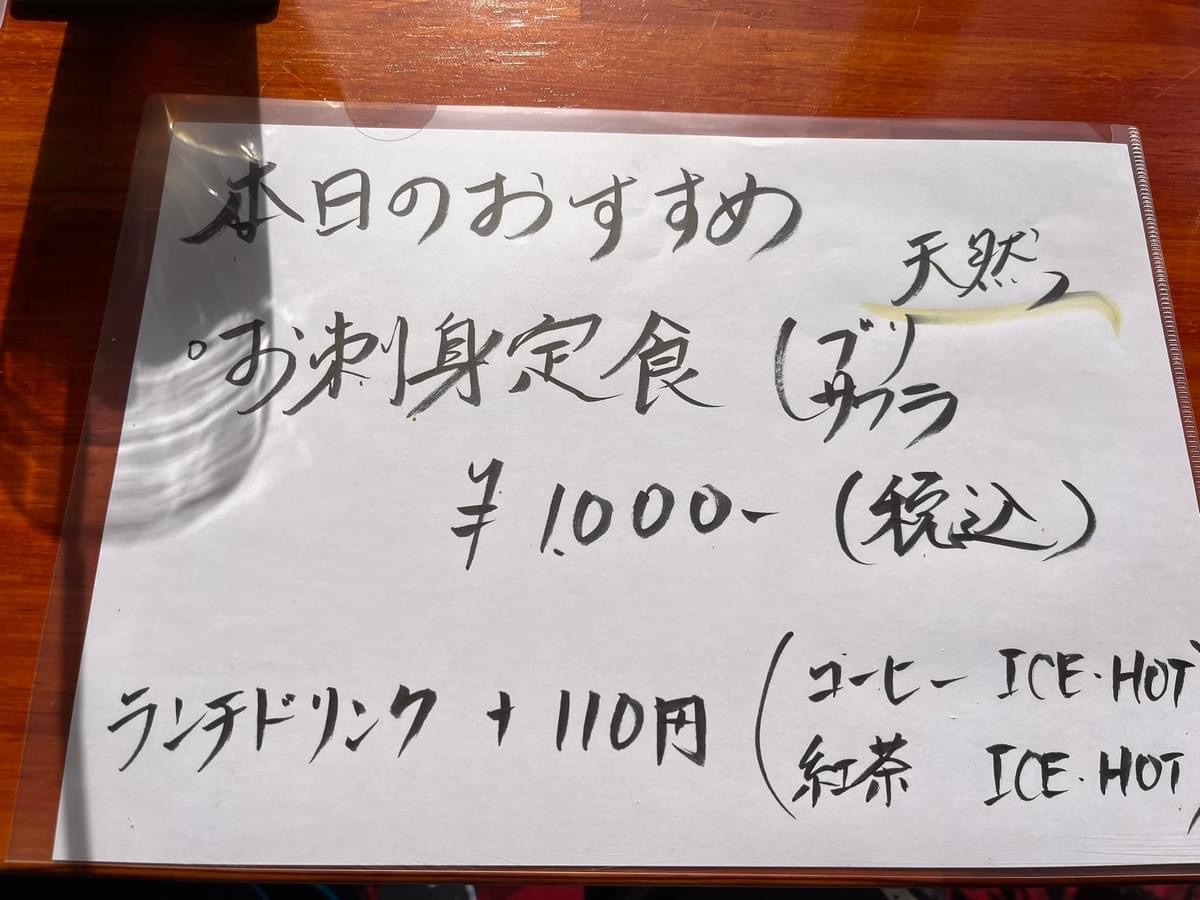 本日のおすすめ
天然
○お刺身定食(ブリ
サワラ
¥1.000-(税込)
ランチドリンク +110円(コーヒー ICE・HOT
紅茶 ICE・HOT)